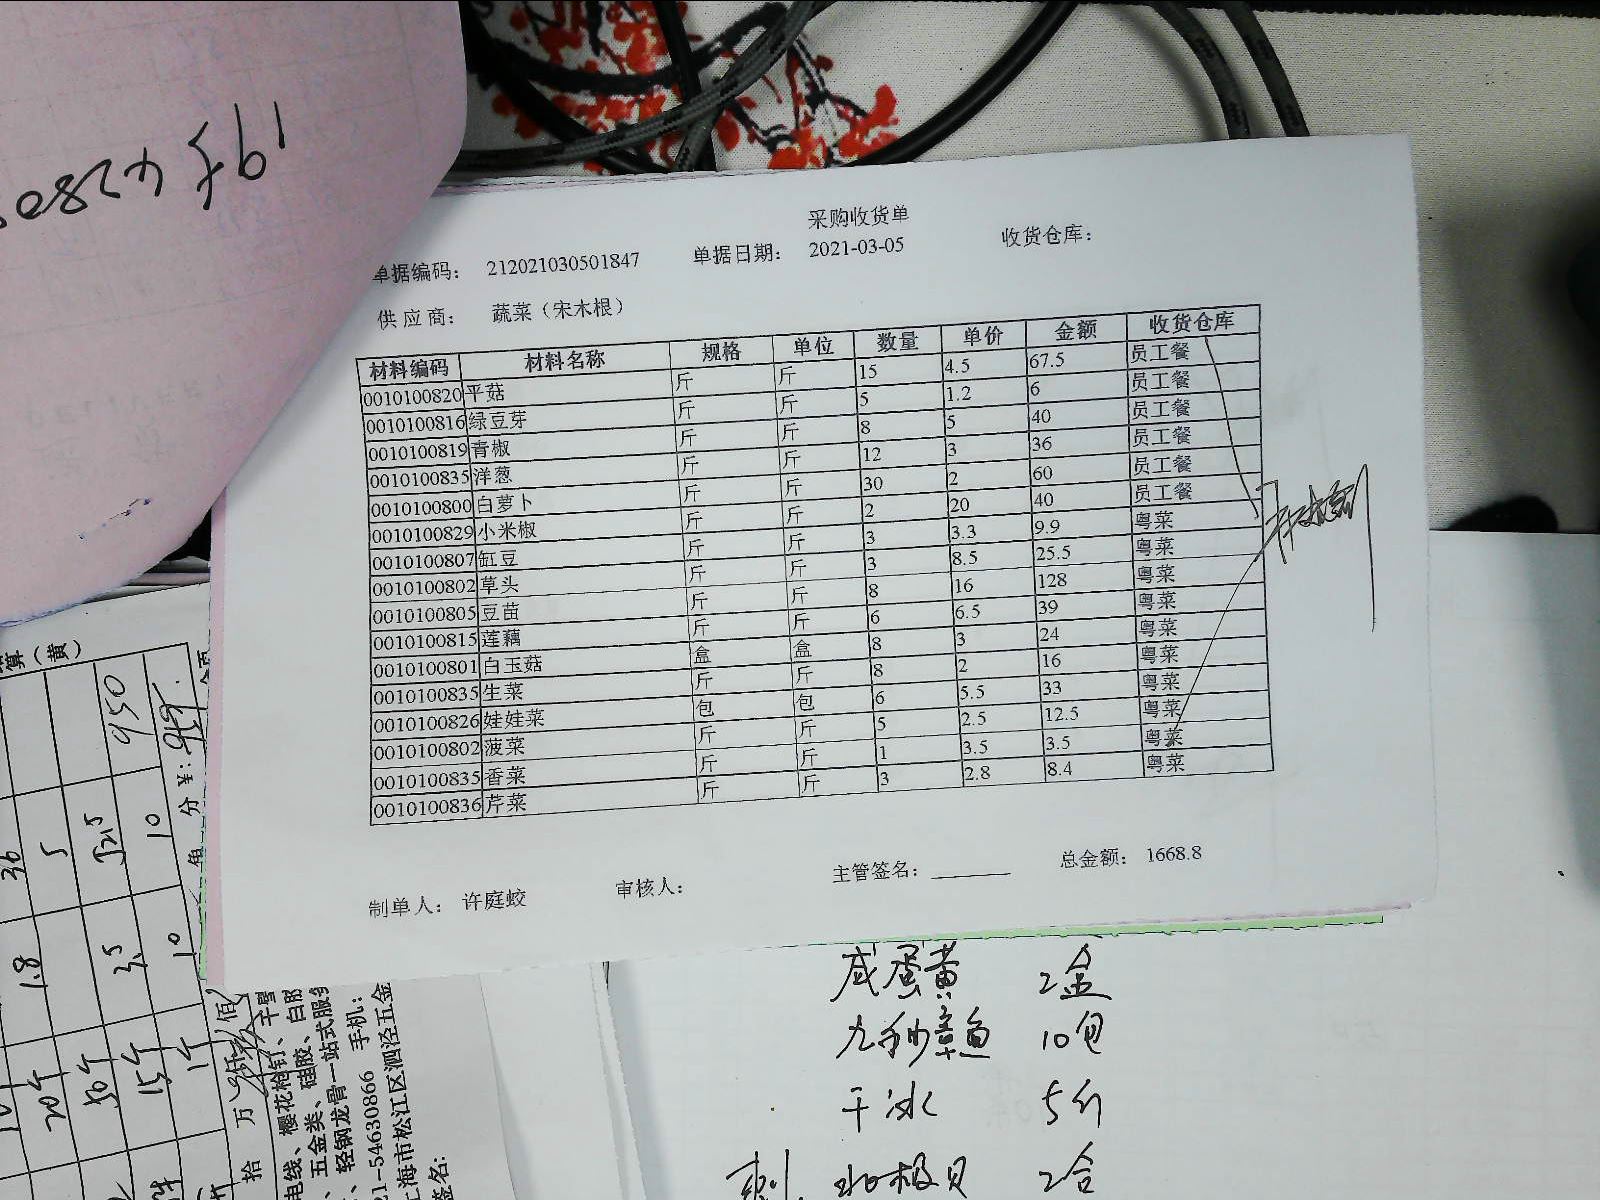 采购收货单
单据编码： 212021030501847 单据日期： 2021-03-05 收货仓库：
供应商： 蔬菜（宋木根）
材料编码 材料名称 规格 单位 数量 单价 金额 收货仓库
0010100820 平菇 斤 斤 15 4.5 67.5 员工餐
0010100816 绿豆芽 斤 斤 5 1.2 6 员工餐
0010100819 青椒 斤 斤 8 5 40 员工餐
0010100835 洋葱 斤 斤 12 3 36 员工餐
0010100800 白萝卜 斤 斤 30 2 60 员工餐
0010100829 小米椒 斤 斤 2 20 40 员工餐
0010100807 缸豆 斤 斤 3 3.3 9.9 粤菜
0010100802 草头 斤 斤 3 8.5 25.5 粤菜
0010100805 豆苗 斤 斤 8 16 128 粤菜
0010100815 莲藕 斤 斤 6 6.5 39 粤菜
0010100801 白玉菇 盒 盒 8 3 24 粤菜
0010100835 生菜 斤 斤 8 2 16 粤菜
0010100826 娃娃菜 包 包 6 5.5 33 粤菜
0010100802 菠菜 斤 斤 5 2.5 12.5 粤菜
0010100835 香菜 斤 斤 1 3.5 3.5 粤菜
0010100836 芹菜 斤 斤 3 2.8 8.4 粤菜
制单人： 许庭蛟 审核人： 主管签名： 总金额： 1668.8
咸蛋黄 2盒
九秒章鱼 10包
干冰 5斤
刺 北极贝 2合
算（黄）
36 5 52.5 10
950
1.8 3.5 10
20个 50个 15个 1个
角 分 ¥:
拾 万 佰
电线、樱花枪钉、干壁
、五金类、硅胶、白胶
、轻钢龙骨一站式服务
21-54630866 手机：
上海市松江区泗泾五金
签名：